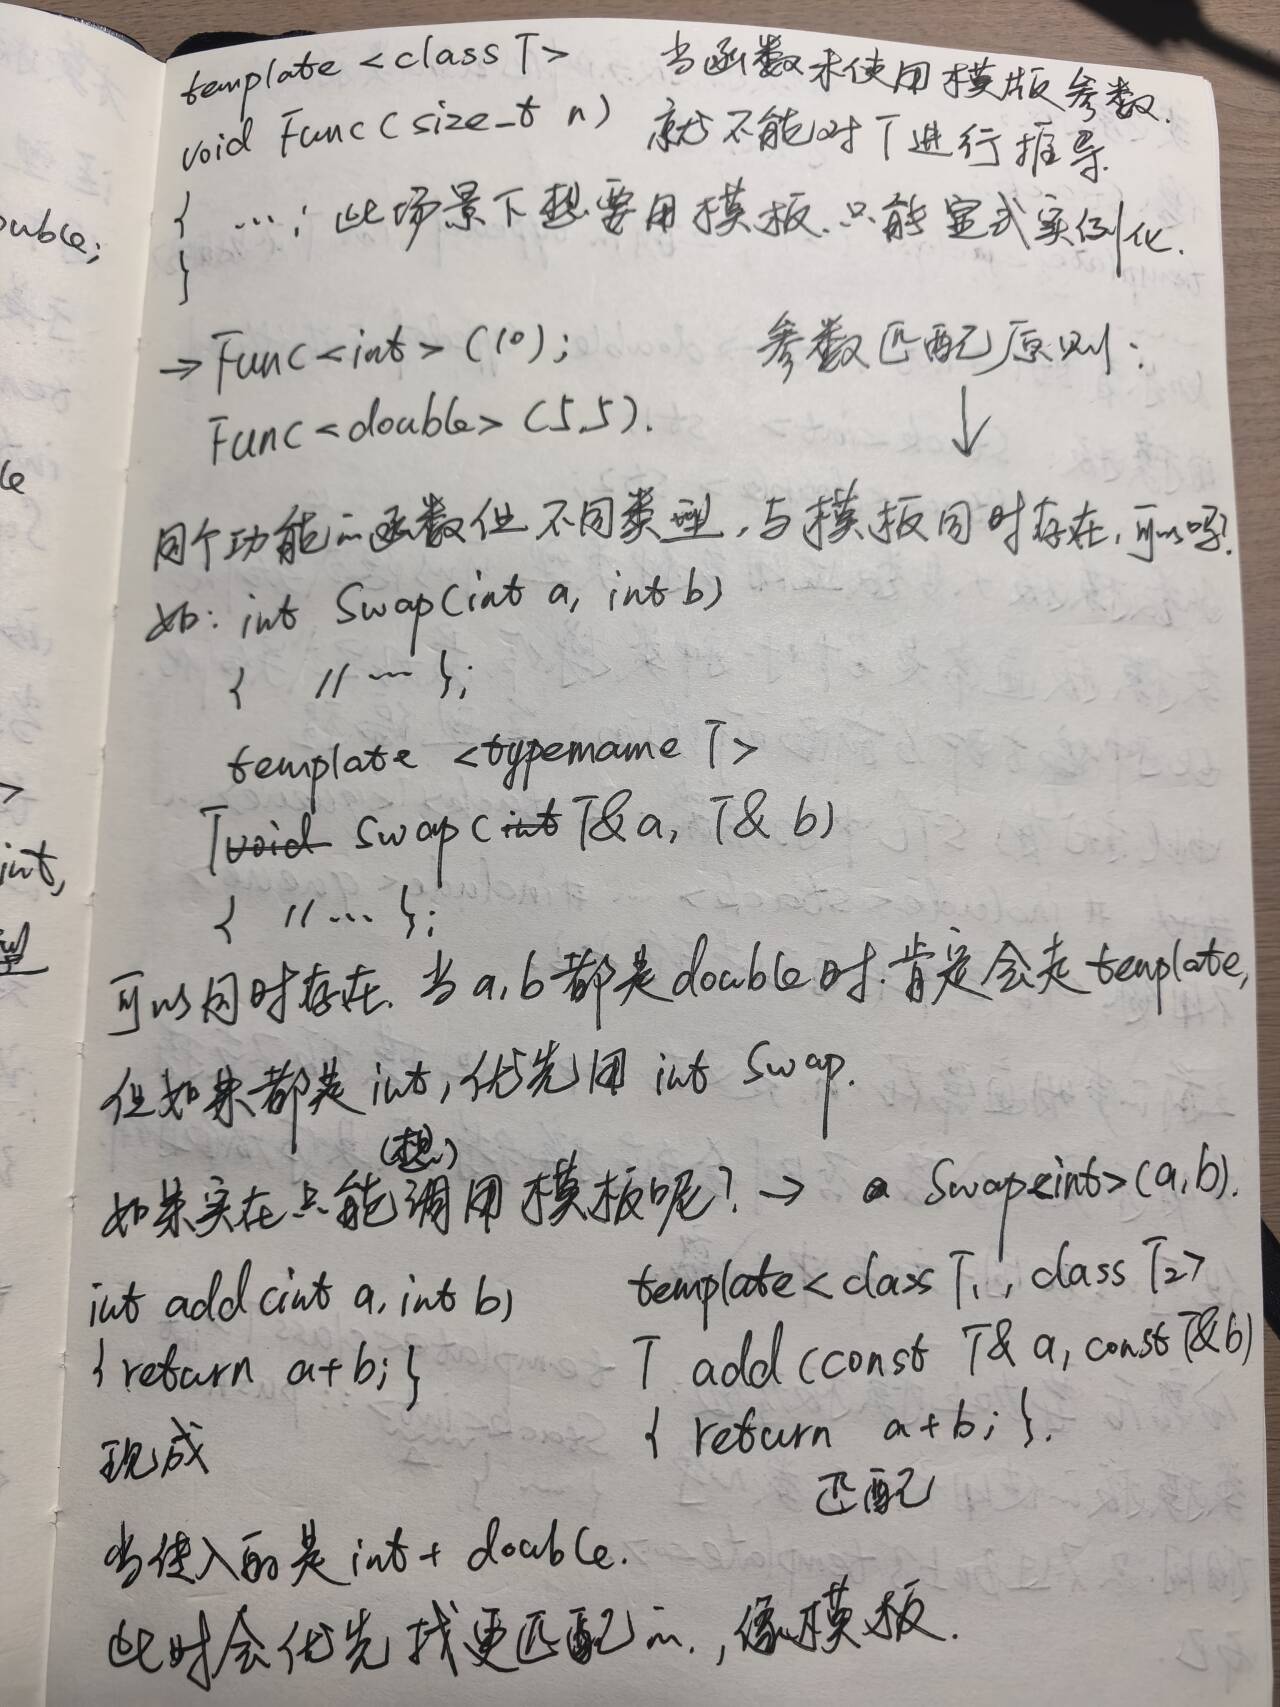 template <class T> 当函数未使用模版参数.
void Func(size_t n) 就不能对T进行推导.
{ ...; 此场景下想要用模板.只能显式实例化.
}
→ Func<int>(10); 参数匹配原则:
Func<double>(5.5). ↓
同个功能的函数但不同类型,与模板同时存在,可以吗?
如: int Swap(int a, int b)
{ //... };
template <typename T>
T void Swap(int T& a, T& b)
{ //... };
可以同时存在.当a,b都是double时.肯定会走template,
但如果都是int,优先用 int Swap.
(想)
如果实在只能调用模板呢? → Swap<int>(a,b).
int add(int a, int b) template<class T1, class T2>
{return a+b;} T add(const T& a, const T&b)
现成 { return a+b; }.
匹配
当传入的是int + double.
此时会优先找更匹配的.,像模板.
ouble;
le
>
int,
型